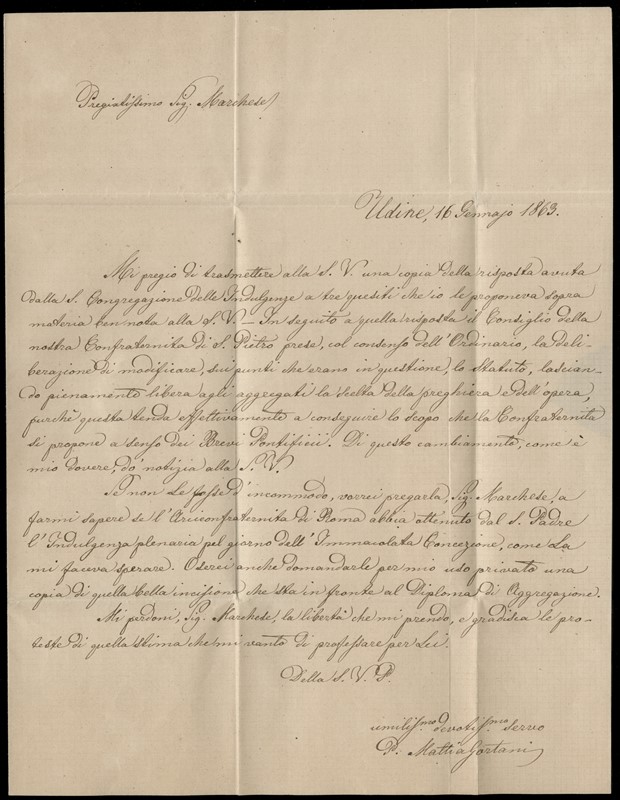 Pregiatissimo Sig. Marchese
Udine, 16 Gennajo 1863.
Mi pregio di trasmettere alla S. V. una copia della risposta avuta
dalla S. Congregazione delle Indulgenze a tre quesiti che io le proponeva sopra
materia ben nota alla S. V. — In seguito a quella risposta il Consiglio della
nostra Confraternita di S. Pietro prese, col consenso dell'Ordinario, la deli-
berazione di modificare, sui punti ch'erano in questione, lo Statuto, lascian-
do pienamente libera agli aggregati la scelta della preghiera e dell'opera,
purchè questa tenda effettivamente a conseguire lo scopo che la Confraternita
si propone a senso dei Brevi Pontificii. Di questo cambiamento, come è
mio dovere, do' notizia alla S. V.
Se non Le fosse d'incommodo, vorrei pregarla, Sig. Marchese, a
farmi sapere se l'Arciconfraternita di Roma abbia ottenuto dal S. Padre
l'Indulgenza plenaria pel giorno dell'Immacolata Concezione, come Ella
mi faceva sperare. Oserei anche domandarle per mio uso privato una
copia di quella bella incisione che sta in fronte al Diploma di Aggregazione.
Mi perdoni, Sig. Marchese, la libertà che mi prendo, e gradisca le pro-
teste di quella stima che mi vanto di professare per Lei.
Della S. V. P.
umiliss.mo devotiss.mo servo
P. Mattia Gortani